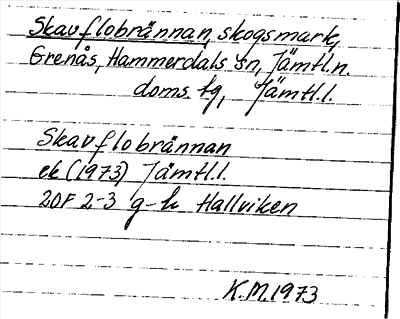 Skavflobrännan, skogsmark,
Grenås, Hammerdals sn, Jämtl.n.
doms. tg, Jämtl.l.
Skavflobrännan
ek (1973) Jämtl.l.
20F 2-3 g-h Hallviken
K.M.1973